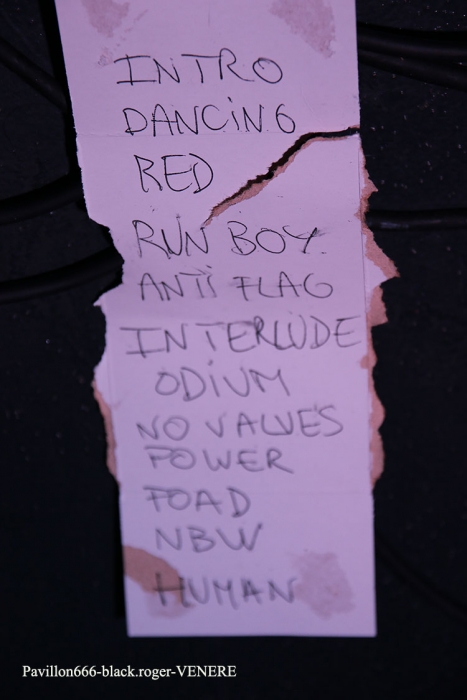 INTRO
DANCiNG
RED
RUN BOY.
ANTi FLAG
INTERLUDE
ODIUM
NO VALUES
POWER
FOAD
NBW
HUMAN
Pavillon666-black.roger-VENERE